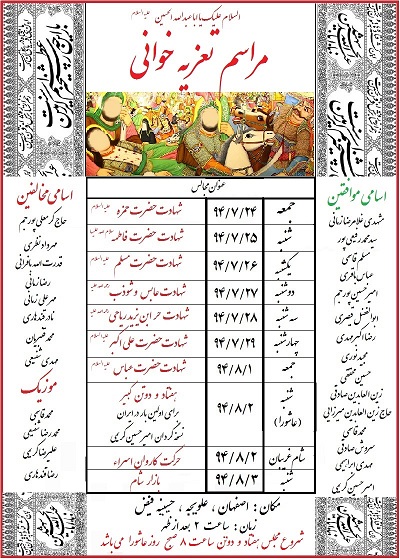 السلام علیک یا ابا عبدالله الحسین علیه السلام
مراسم تعزیه خوانی
عنوان مجالس
جمعه ۹۴/۷/۲۴ شهادت حضرت حمزه علیه السلام
شنبه ۹۴/۷/۲۵ شهادت حضرت فاطمه سلام الله علیها
یکشنبه ۹۴/۷/۲۶ شهادت حضرت مسلم علیه السلام
دوشنبه ۹۴/۷/۲۷ شهادت عابس و شوذب
سه شنبه ۹۴/۷/۲۸ شهادت حر ابن یزید ریاحی
چهارشنبه ۹۴/۷/۲۹ شهادت حضرت علی اکبر علیه السلام
جمعه ۹۴/۸/۱ شهادت حضرت عباس علیه السلام
شنبه (عاشورا) ۹۴/۸/۲ هفتاد و دو تن کبیر
برای اولین بار در ایران
نسخه گردان امیرحسین کریمی
شام غریبان ۹۴/۸/۲ حرکت کاروان اسراء
شنبه ۹۴/۸/۳ بازار شام
اسامی موافقین
مشهدی غلامرضا زمانی
سید محمد رئیسی پور
مسلم قاسمی
عباس باقری
امیرحسین پورجم
ابوالفضل خضری
رضا اکبر مهدی
مجید نوری
حسین محققی
زین العابدین صادقی
حاج زین العابدین میرزایی
محمد قاسمی
سروش صادقی
مهدی ابراهیمی
امیرحسین کریمی
اسامی مخالفین
حاج کرمعلی پورجم
مهرداد نظری
قدرت الله باقرانی
رضا زمانی
مهرعلی زمانی
نادر قندهاری
محمد قنبریان
مهدی شفیعی
موزیک
محمد قاسمی
محمدرضا شفیعی
علیرضا کریمی
رضا قندهاری
مکان: اصفهان، علویجه، حسینیه فیض
زمان: ساعت ۲ بعد از ظهر
شروع مجلس هفتاد و دو تن ساعت ۸ صبح روز عاشورا می باشد